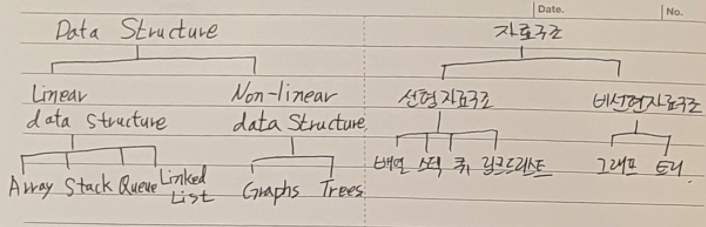 Date.
No.
Data Structure
Linear
data structure
Non-linear
data Structure
Array Stack Queue Linked List
Graphs Trees
자료구조
선형자료구조
비선형자료구조
배열 스택 큐 링크드리스트
그래프 트리